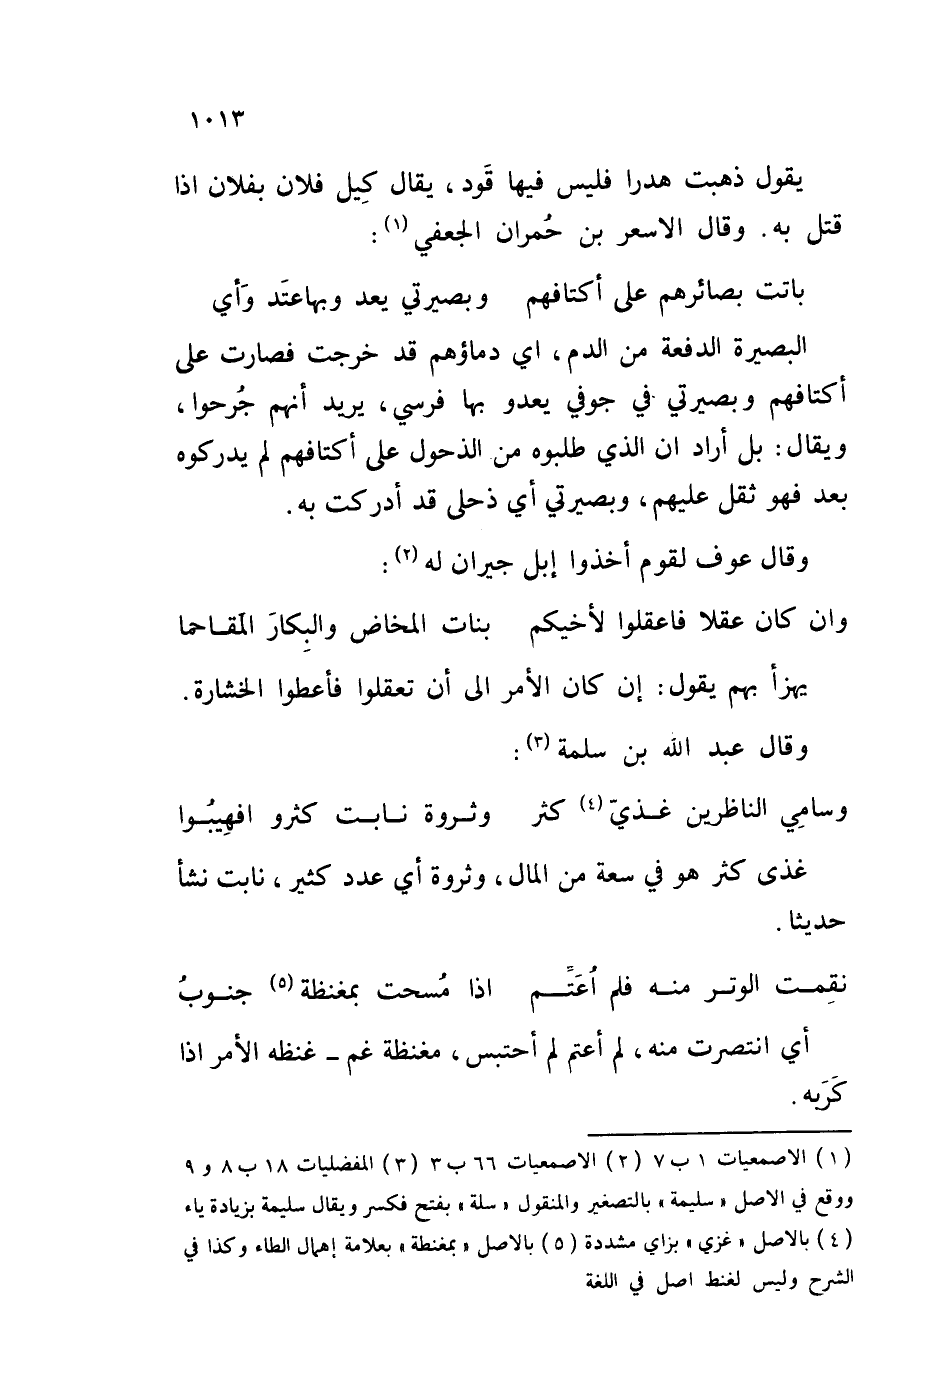 ١٠١٣
يقول ذهبت هدرا فليس فيها قَود ، يقال كِيل فلان بفلان اذا
قتل به . وقال الاسعر بن حُمران الجعفي (١) :
باتت بصائرهم على أكتافهم وبصيرتي يعد وبهاعتَد وَأي
البصيرة الدفعة من الدم ، اي دماؤهم قد خرجت فصارت على
أكتافهم وبصيرتي في جوفي يعدو بها فرسي ، يريد أنهم جُرحوا ،
ويقال : بل أراد ان الذي طلبوه من الذحول على أكتافهم لم يدركوه
بعد فهو ثقل عليهم ، وبصيرتي أي ذحلى قد أدركت به .
وقال عوف لقوم أخذوا إبل جيران له (٢) :
وان كان عقلا فاعقلوا لأخيكم بنات المخاض والبِكارَ المَقاحما
يهزأ بهم يقول : إن كان الأمر الى أن تعقلوا فأعطوا الخشارة .
وقال عبد الله بن سلمة (٣) :
وسامِي الناظرين غذيّ (٤) كثر وثروة نابت كثرو افهِيبُوا
غذى كثر هو في سعة من المال ، وثروة أي عدد كثير ، نابت نشأ
حديثا .
نقِمت الوتر منه فلم اُعَتِّم اذا مُسحت بمغنظة (٥) جنوبُ
أي انتصرت منه ، لم أعتم لم أحتبس ، مغنظة غم ــ غنظه الأمر اذا
كَرَبه .
(١) الاصمعيات ١ ب ٧ (٢) الاصمعيات ٦٦ ب ٣ (٣) المفضليات ١٨ ب ٨ و ٩
ووقع في الاصل « سليمة » بالتصغير والمنقول « سلة » بفتح فكسر ويقال سليمة بزيادة ياء
(٤) بالاصل « غزي » بزاي مشددة (٥) بالاصل « بمغنطة » بعلامة إهمال الطاء وكذا في
الشرح وليس لغنط اصل في اللغة